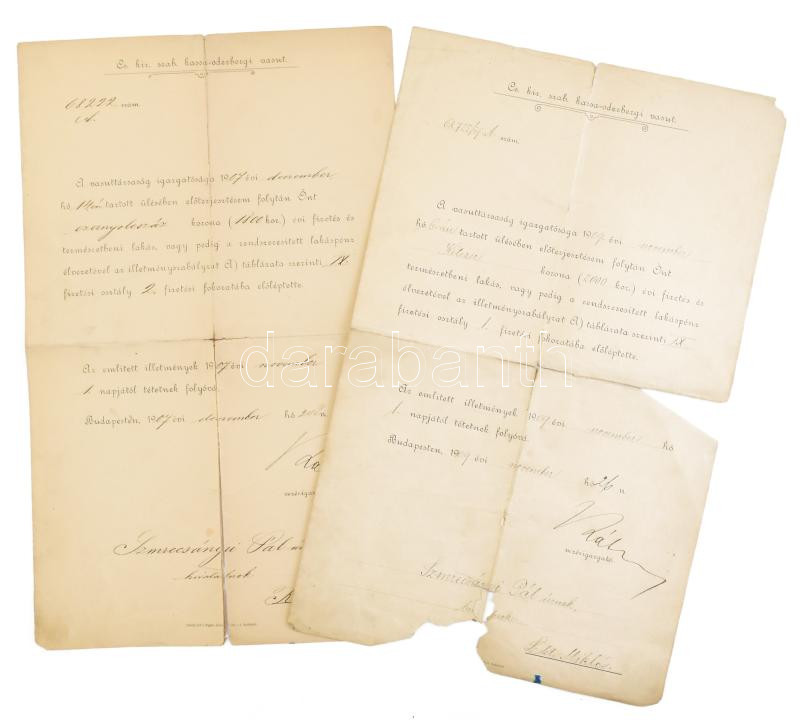 Cs. kir. szab. kassa-oderbergi vasut.
68222 szám.
A.
A vasuttársaság igazgatósága 1907 évi december
hó 14én tartott ülésében előterjesztésem folytán Önt
ezernyolcszáz korona (1800 kor.) évi fizetés és
természetbeni lakás, vagy pedig a rendszeresített lakáspénz
élvezetével az illetményszabályzat A) táblázata szerinti IX.
fizetési osztály 2. fizetési fokozatába előléptette.
Az emlitett illetmények 1907 évi november
1. napjától tétetnek folyóvá.
Budapesten, 1907 évi december hó
vezérigazgató
Szmrecsányi Pál
hivatalnok
Cs. kir. szab. kassa-oderbergi vasut.
szám.
A vasuttársaság igazgatósága 1909 évi november
hó tartott ülésében előterjesztésem folytán Önt
korona (2000 kor.) évi fizetés és
természetbeni lakás, vagy pedig a rendszeresített lakáspénz
élvezetével az illetményszabályzat A) táblázata szerinti IX
fizetési osztály 1. fizetési fokozatába előléptette.
Az emlitett illetmények 1909 évi november hó
1. napjától tétetnek folyóvá.
Budapesten, 1909 évi november hó 26 n
vezérigazgató.
Szmrecsányi Pál úrnak,
Miklós.
darabanth